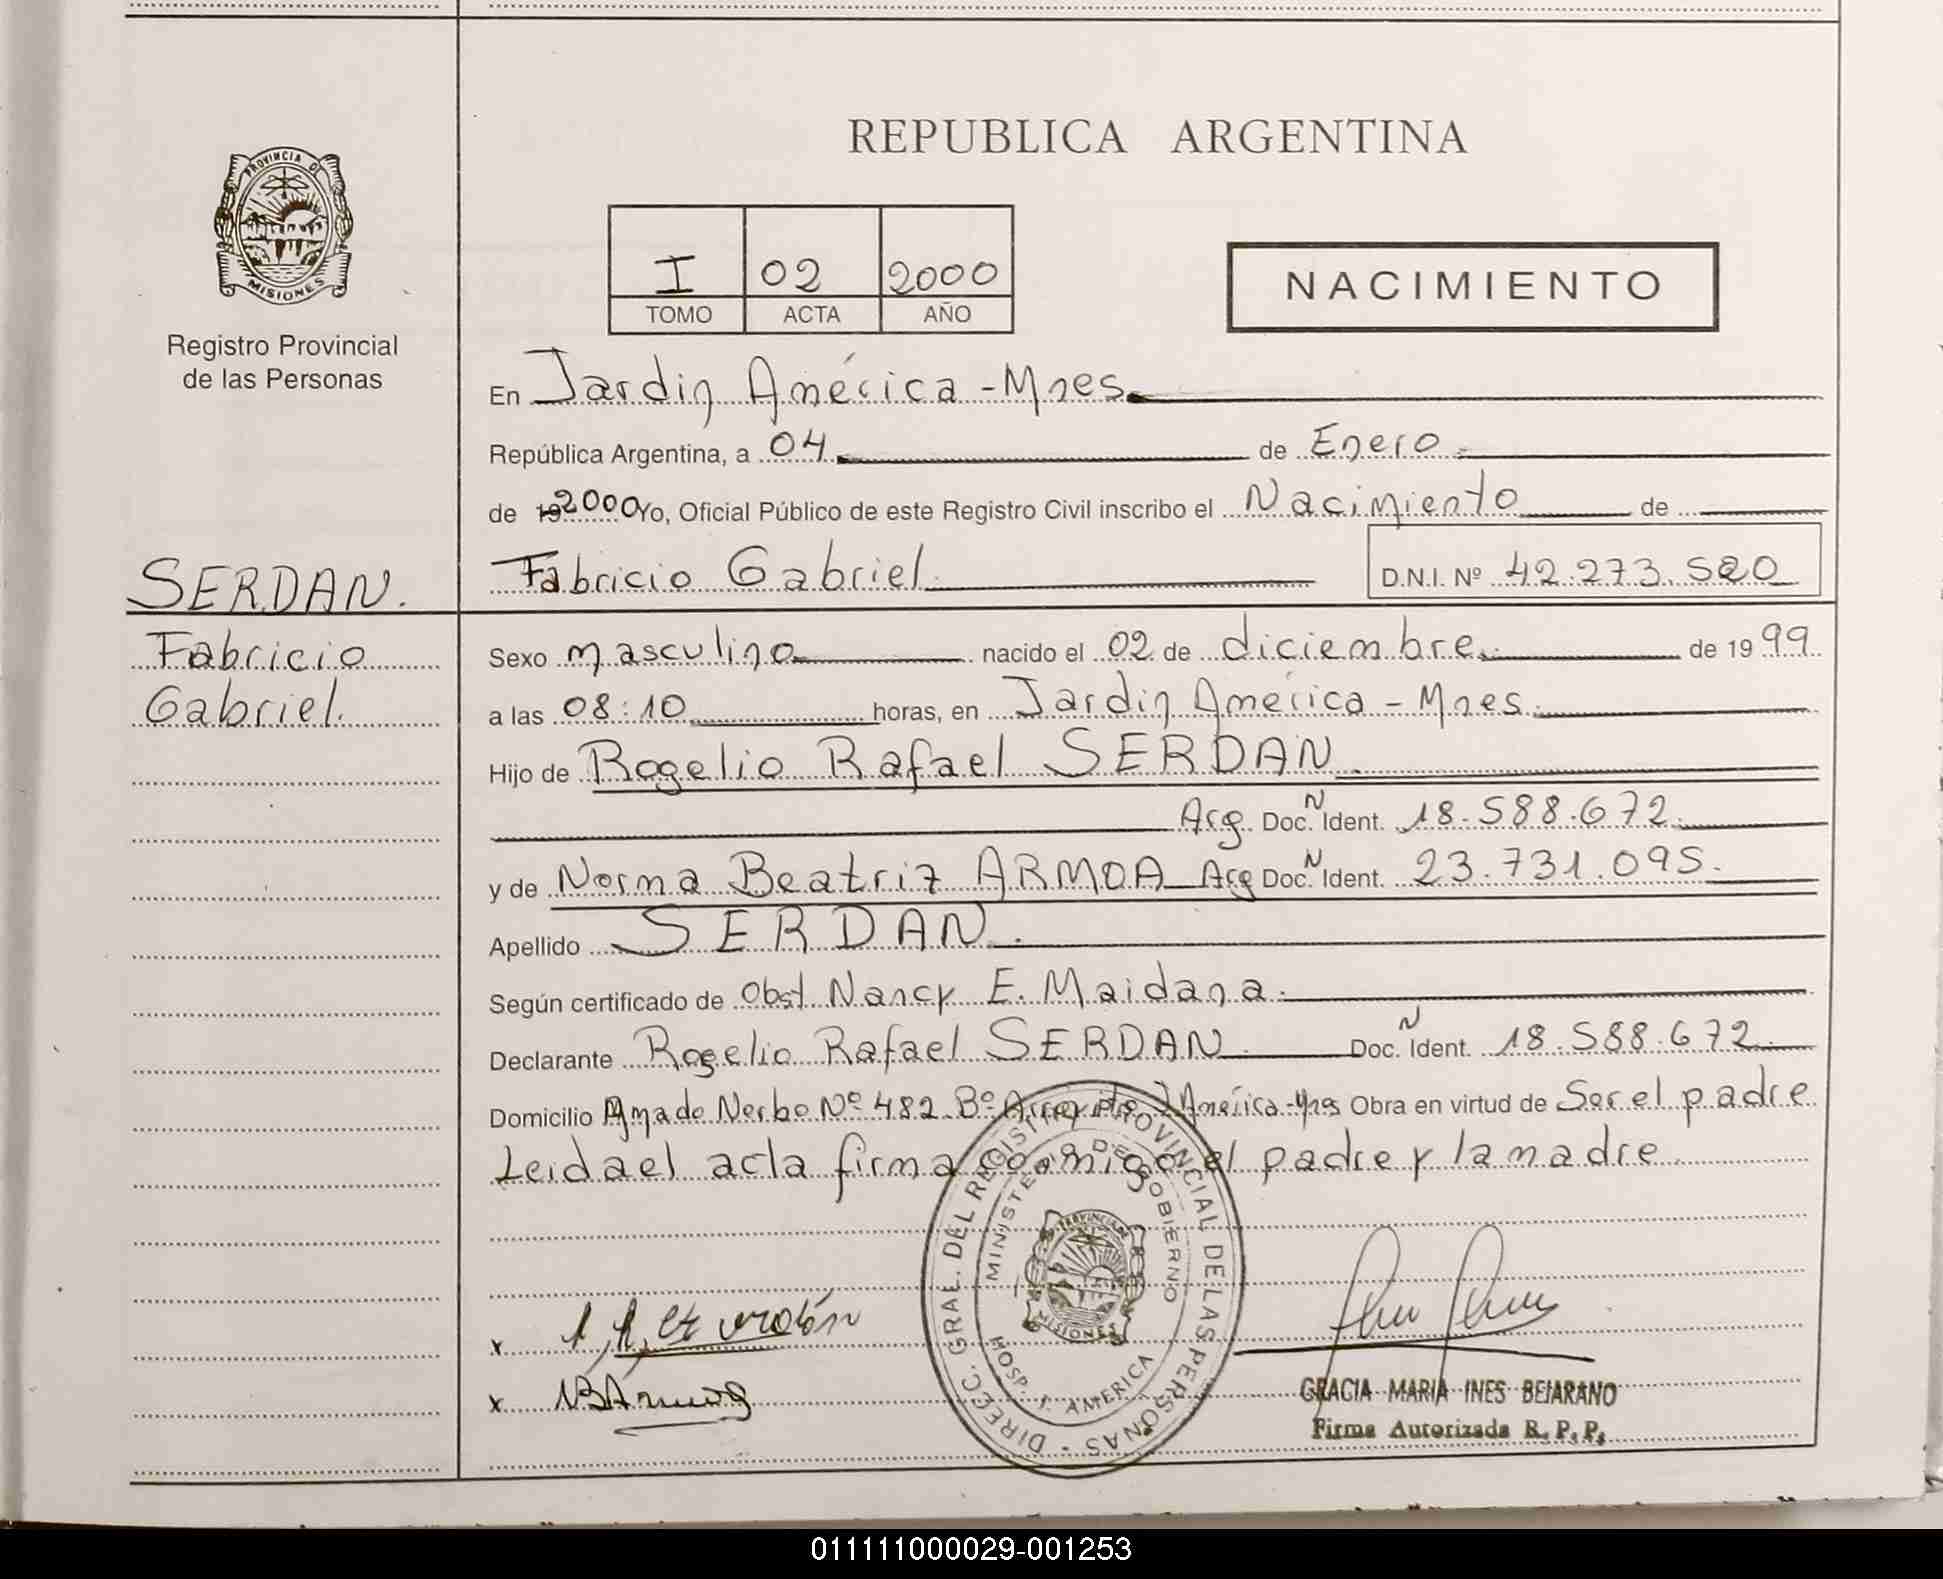 PROVINCIA DE
MISIONES
Registro Provincial
de las Personas
SERDAN.
Fabricio
Gabriel.
REPUBLICA ARGENTINA
I 02 2000
TOMO ACTA AÑO
NACIMIENTO
En Jardin América - Mnes.
República Argentina, a 04 de Enero.
de 19 2000 Yo, Oficial Público de este Registro Civil inscribo el Nacimiento de
Fabricio Gabriel. D.N.I. Nº 42.273.520
Sexo masculino nacido el 02 de diciembre. de 1999
a las 08:10 horas, en Jardin América - Mnes.
Hijo de Rogelio Rafael SERDAN.
Arg. Doc. N Ident. 18.588.672.
y de Norma Beatriz ARMOA Arg Doc. N Ident. 23.731.095.
Apellido SERDAN.
Según certificado de Obst Nancy E. Maidana.
Declarante Rogelio Rafael SERDAN. Doc. N Ident. 18.588.672.
Domicilio Amado Nerbo Nº 482 Bº J América - Mnes Obra en virtud de Ser el padre
Leida el acta firma conmigo el padre y la madre.
DIRECC. GRAL. DEL REGISTRO PROVINCIAL DE LAS PERSONAS
MINISTERIO DE GOBIERNO
PROVINCIA DE
MISIONES
HOSP. J. AMERICA
x
x NBArmoa
GRACIA MARIA INES BEJARANO
Firma Autorizada R. P. P.
011111000029-001253